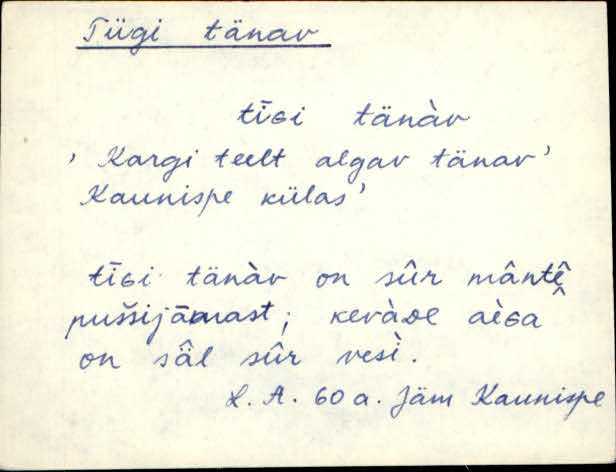 Tiigi tänav
tīɢi tänàv
' Kargi teelt algav tänav'
Kaunispe külas'
tīɢi tänàv on sûr mântê̬
puššijāmast; kevàᴅe aèɢa
on säl sûr vesì.
L. A. 60 a. Jäm Kaunispe